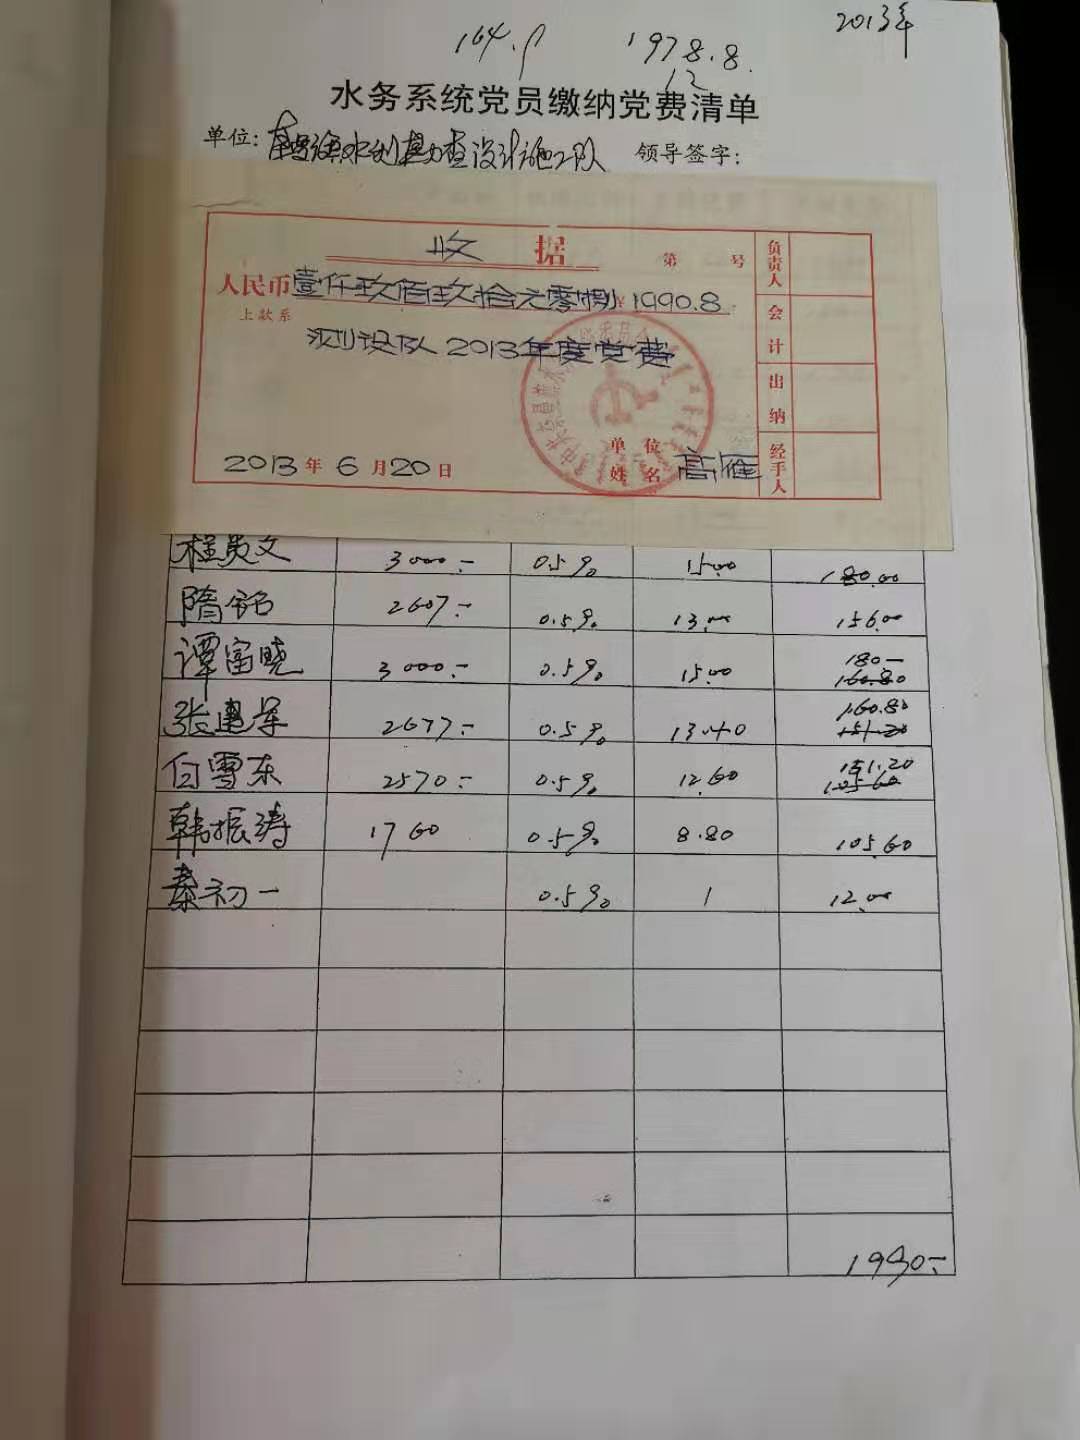 2013年
164.9 1978.8
12
水务系统党员缴纳党费清单
单位: 水利勘查设计施工队 领导签字:
收 据 第 号
人民币壹仟玖佰玖拾元零捌 ¥1990.8
上款系
测设队2013年度党费
2013年6月20日
单位
姓名 高雁
负责人
会计
出纳
经手人
程贵文 3000.- 0.5% 15.00 180.00
隋铭 2607.- 0.5% 13.00 156.00
谭富晓 3000.- 0.5% 15.00 180- 160.80
张建军 2677.- 0.5% 13.40 160.80 151.20
白雪东 2570.- 0.5% 12.60 151.20 105.60
韩振涛 1760 0.5% 8.80 105.60
秦初一 0.5% 1 12.00
1990.-